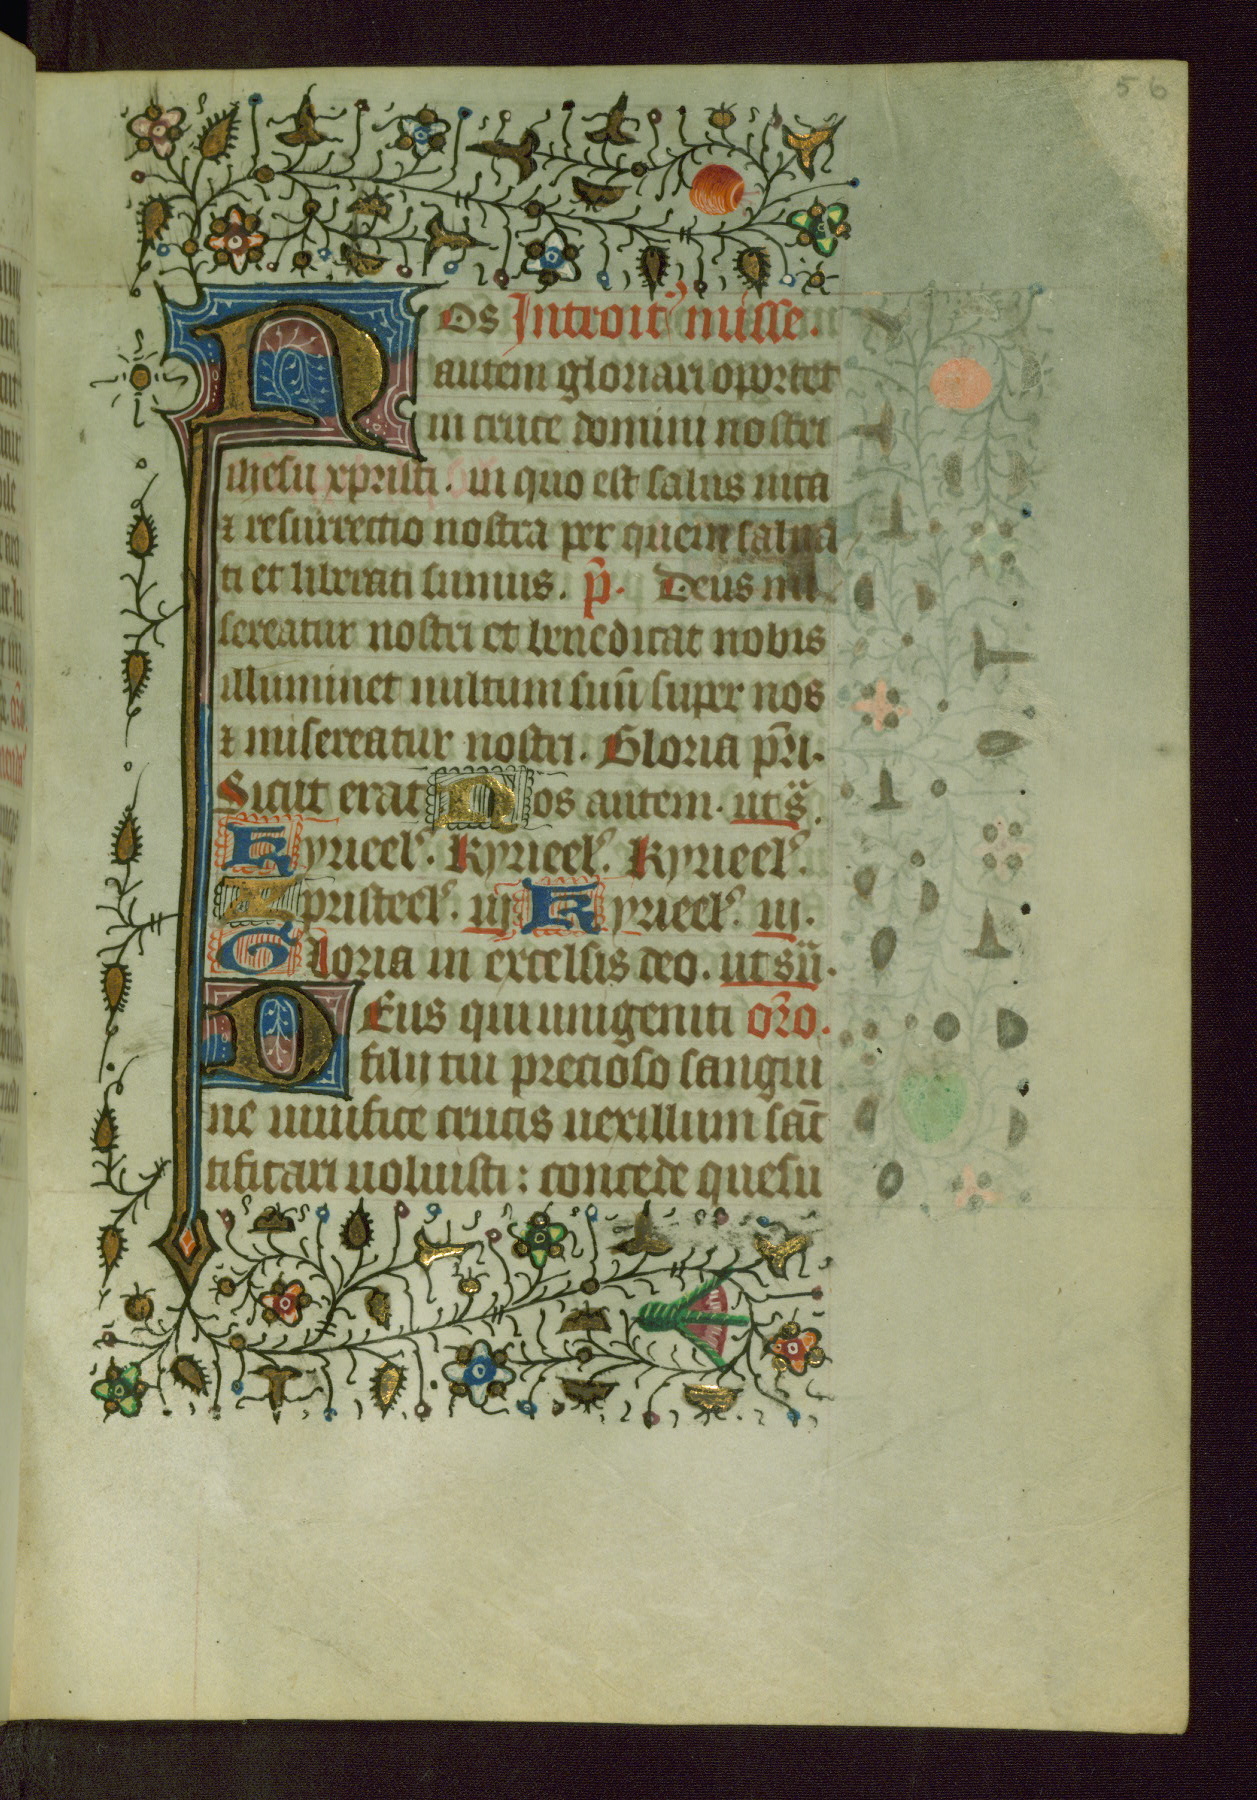 56
Nos Introit᷒ misse.
autem gloriari oportet
in cruce domini nostri
ihesu xpristi. in quo est salus uita
⁊ resurrectio nostra per quem salua
ti et liberati sumus. p̄. Deus mi
sereatur nostri et benedicat nobis
illuminet uultum suū super nos
⁊ misereatur nostri. Gloria p̄ri.
Sicut erat Nos autem. ut sͣ.
Kyrieel᷒. kyrieel᷒. kyrieel᷒.
Xpristeel᷒. iij Kyrieel᷒. iij.
Gloria in excelsis deo. ut sͣ.
DEus qui unigeniti or̄o.
filij tui precioso sangui
ne uiuifice crucis uexillum sāc
tificari uoluisti: concede quesu